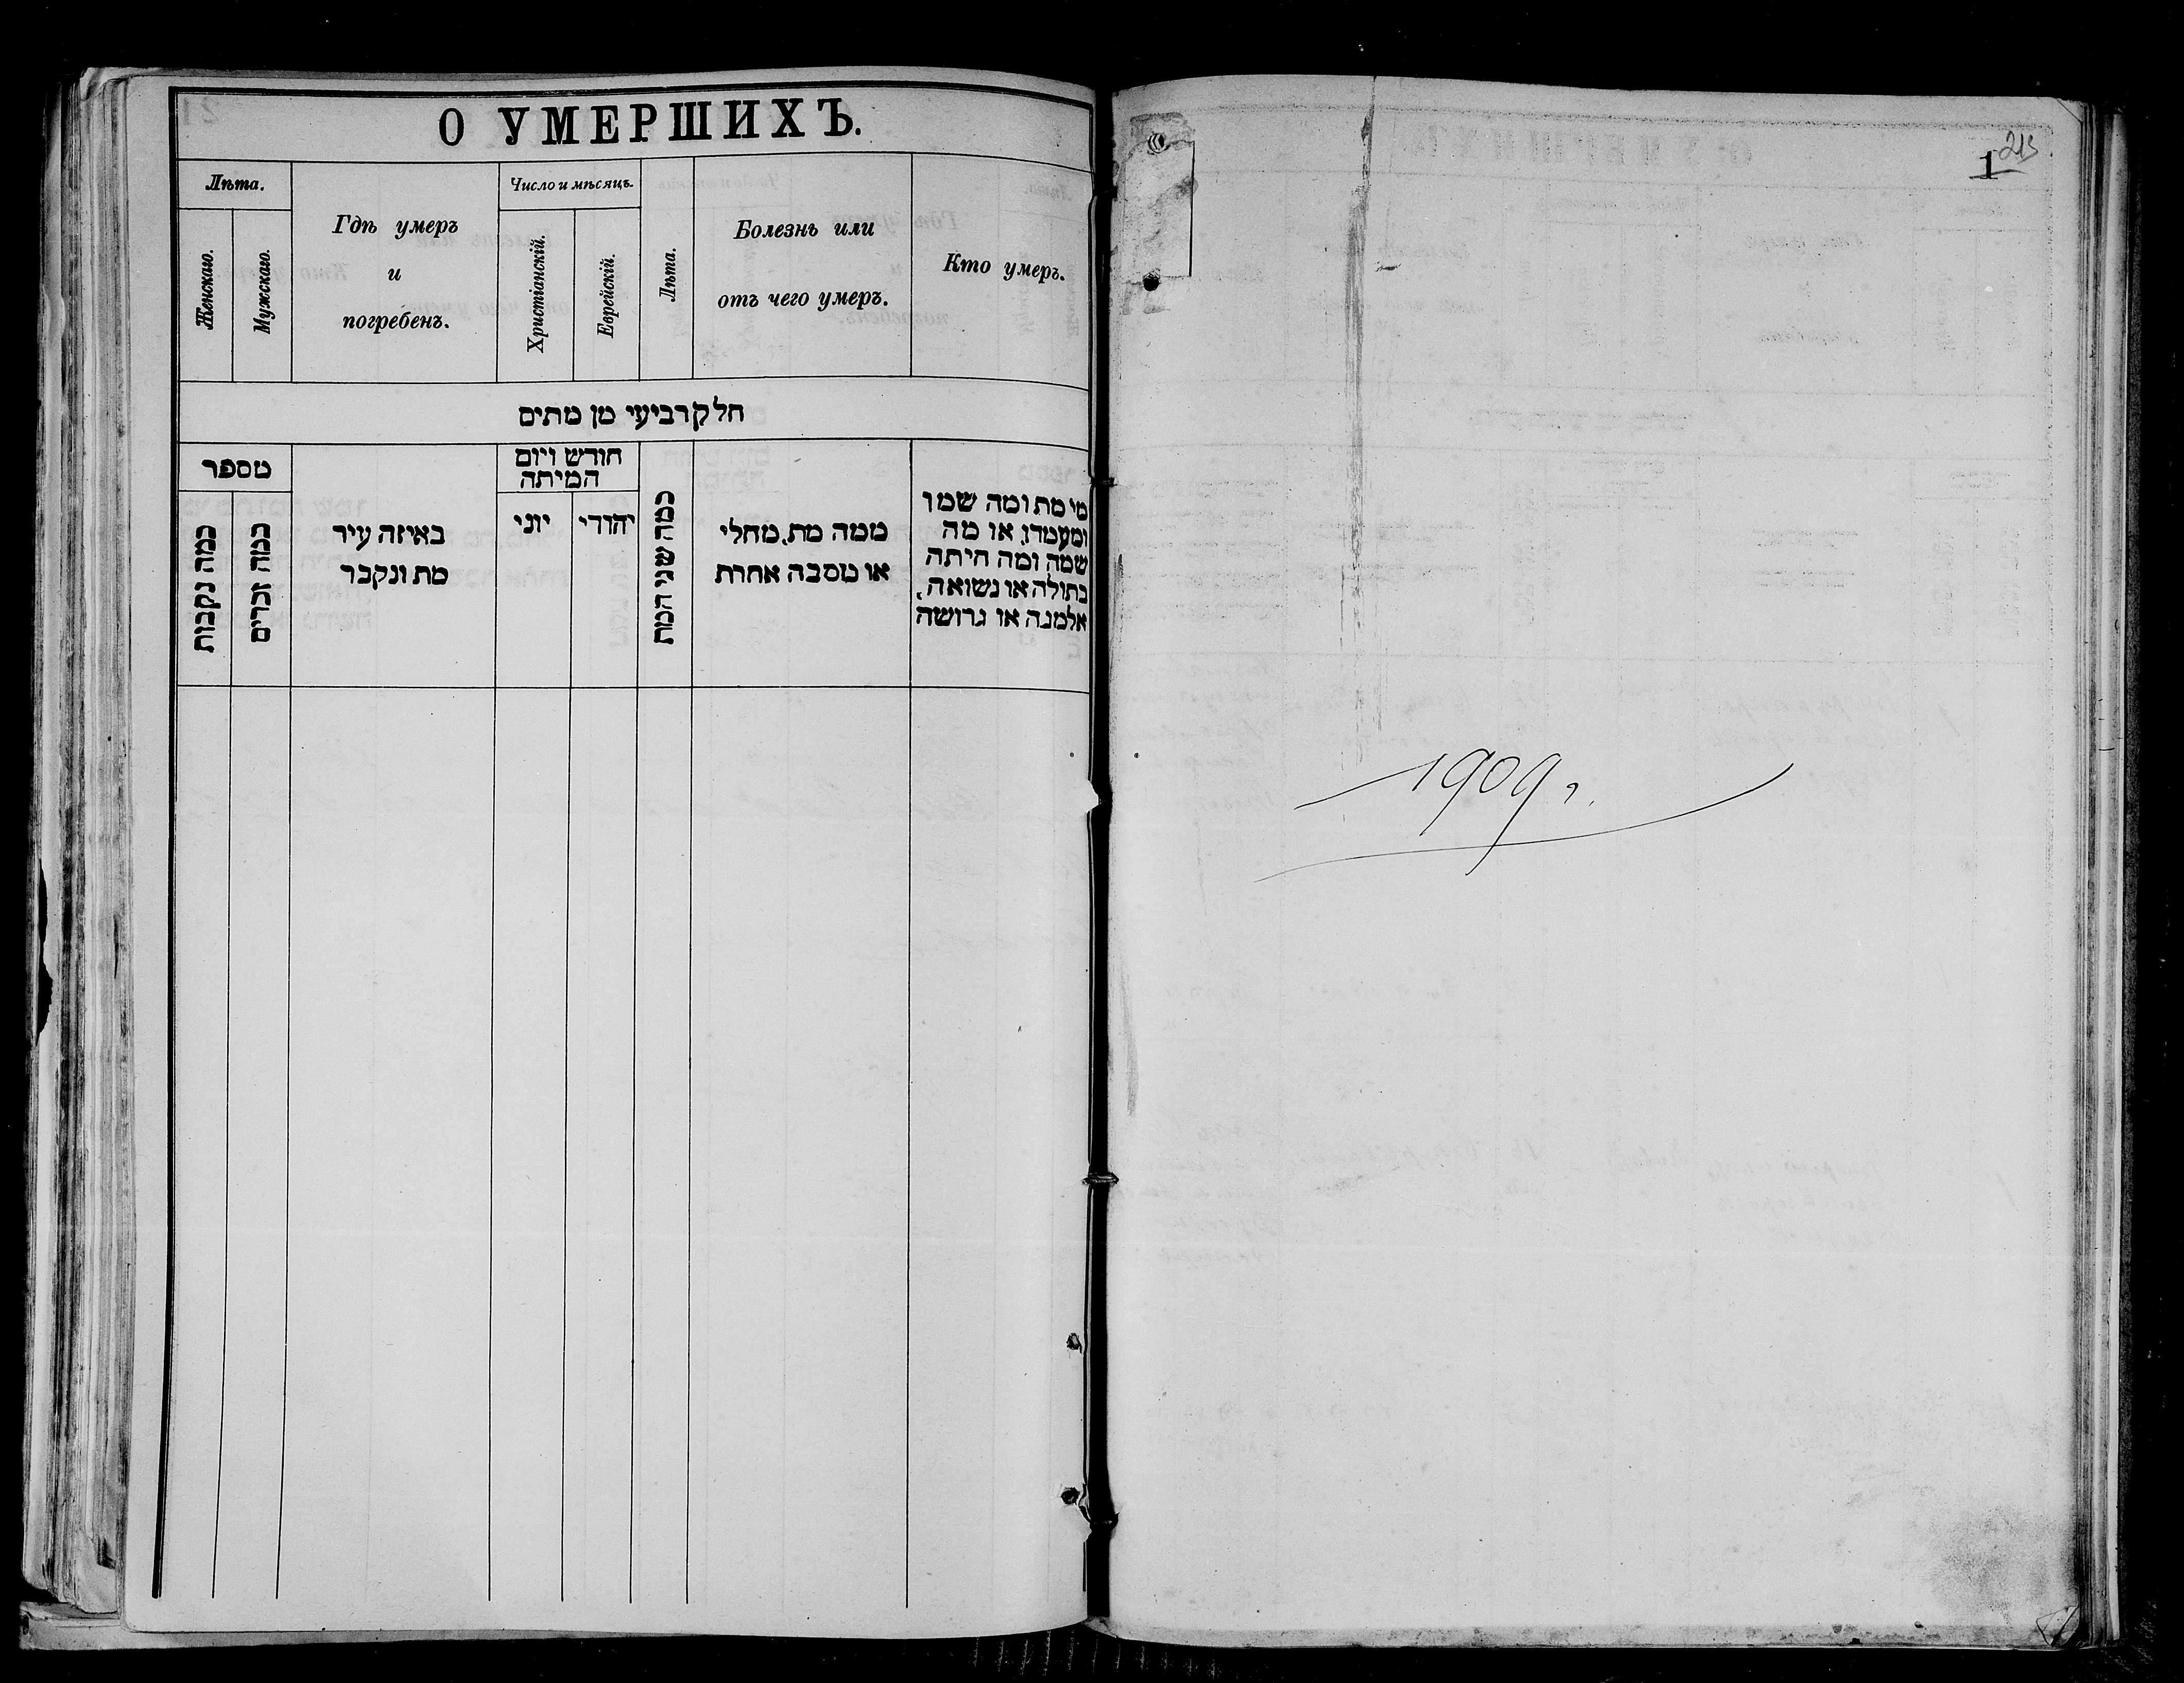 О УМЕРШИХЪ.
Лѣта.
Женскаго.
Мужскаго.
Гдѣ умеръ
и
погребенъ.
Число и мѣсяцъ.
Христіанскій.
Еврейскій.
Лѣта.
Болезнь или
отъ чего умеръ.
Кто умеръ.
חלק רביעי מן מתים
מספר
כמה נקבות
כמה זכרים
באיזה עיר
מת ונקבר
חודש ויום
המיתה
יוני
יהודי
כמה שני המת
ממה מת, מחלי
או מסבה אחרת
מי מת ומה שמו
ומעמדו, או מה
שמה ומה היתה
בתולה או נשואה,
אלמנה או גרושה
213
1
1909 г.